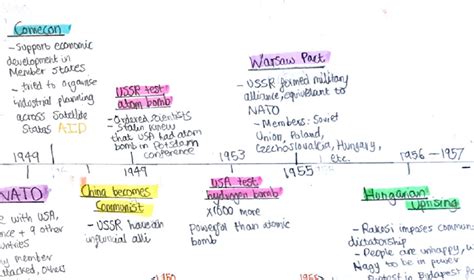 Comecon
- Support economic
development in
Member States
- tried to organise
industrial planning
across Satellite
States AID
USSR test
atom bomb
- Ordered scientists
- Stalin knew
that USA had atom
bomb in Potsdam
conference
Warsaw Pact
- USSR formed military
alliance, equivalent to
NATO
- Members: Soviet
Union, Poland,
Czechoslovakia, Hungary,
etc.
1949
1949
1953
1955
1956 - 1957
NATO
with USA,
+ 9 other
ountries
ny member
attacked
China becomes
Communist
- USSR have an
influncial alli
USA test
hydrogen bomb
x1000 more
powerful than atomic
bomb
Hungarian
Uprising
- Rakosi imposes commu
dictatorship
- People are unhappy, u
Nagy to be in power